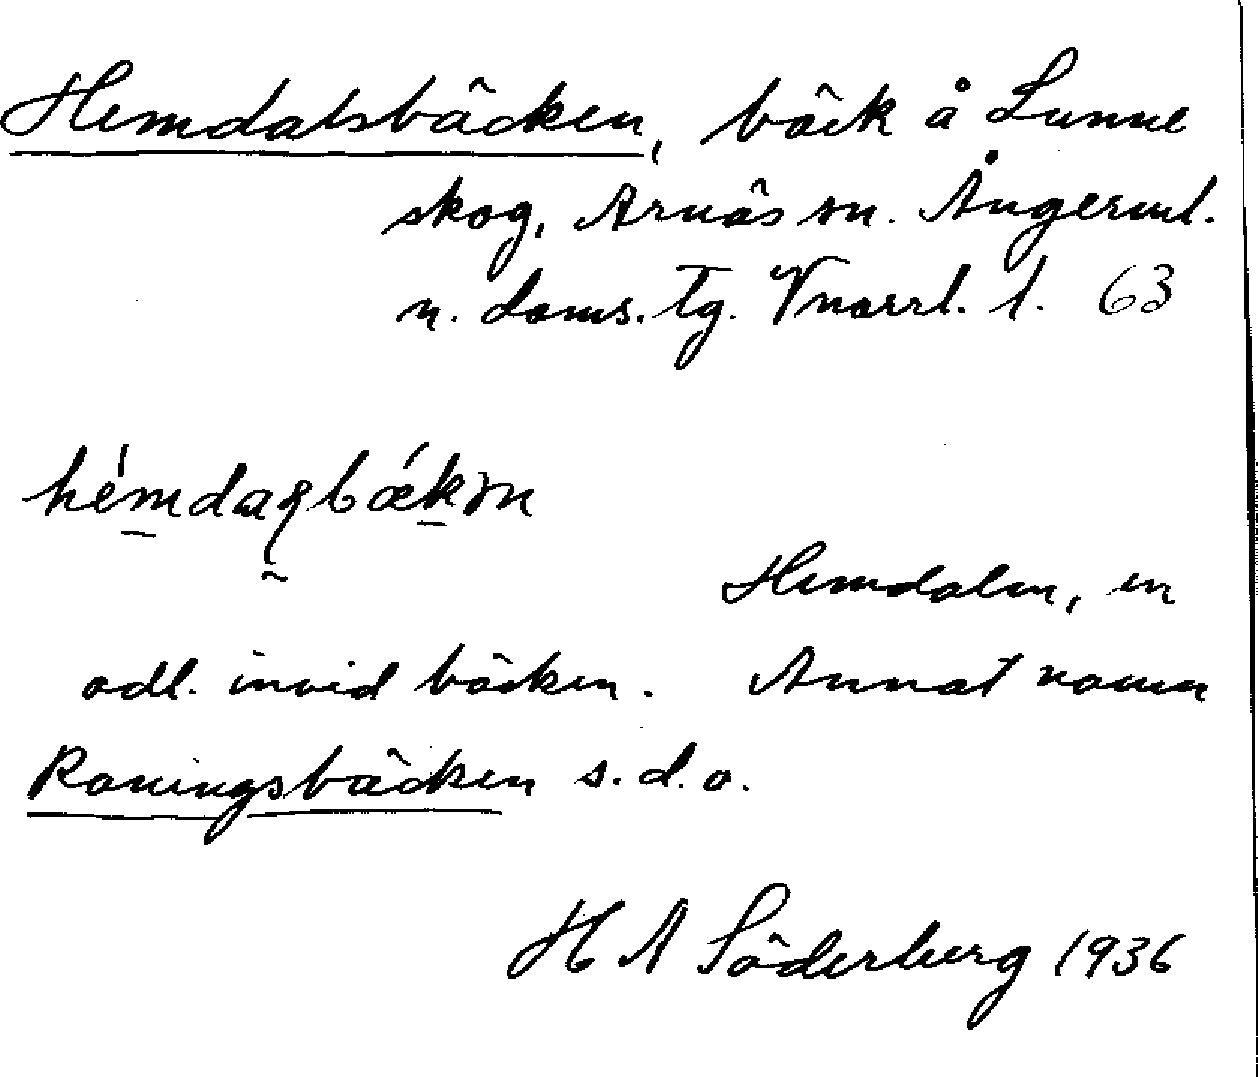 Hemdalsbäcken, bäck å Lunne
skog, Arnäs sn. Ångerml.
n. doms. tg. Vnorrl. l. 63
hémdaꞎbǽkən
Hemdalen, en
odl. invid bäcken. Annat namn
Roningsbäcken s.d.o.
H A Söderberg 1936